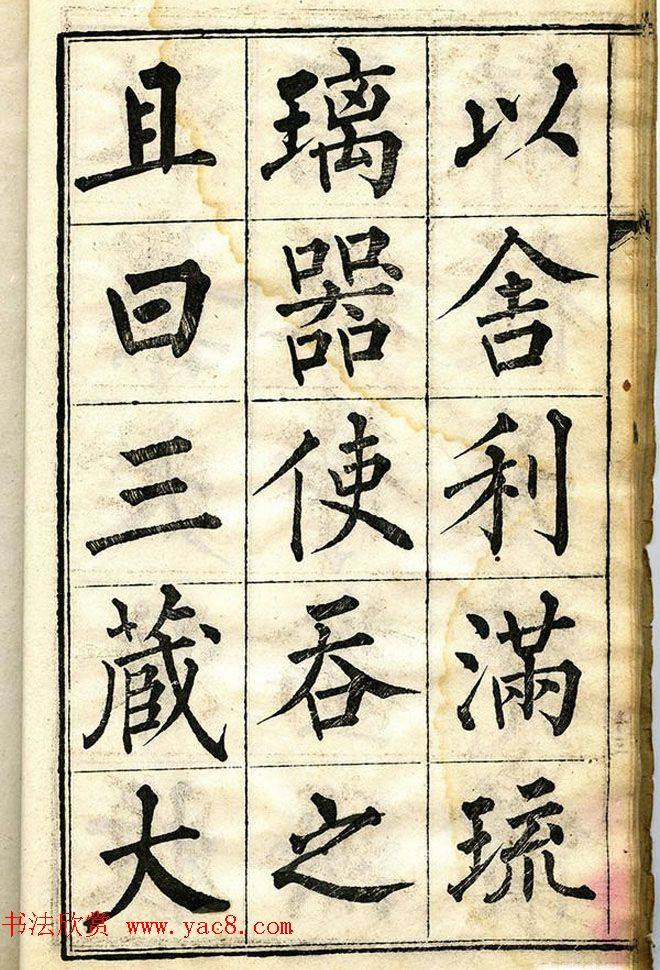 以舍利滿琉
璃器使吞之
且曰三藏大
书法欣赏 www.yac8.com